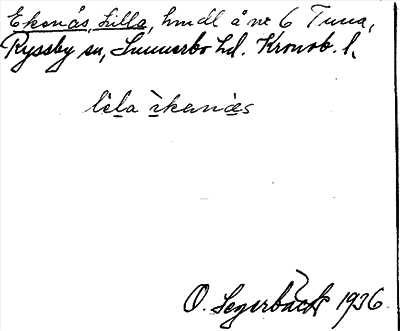 Ekenäs, Lilla, hmdl å nr 6 Tuna,
Ryssby sn, Sunnerbo hd. Kronob. l.
lila ìkenäs
O. Segerbäck 1936